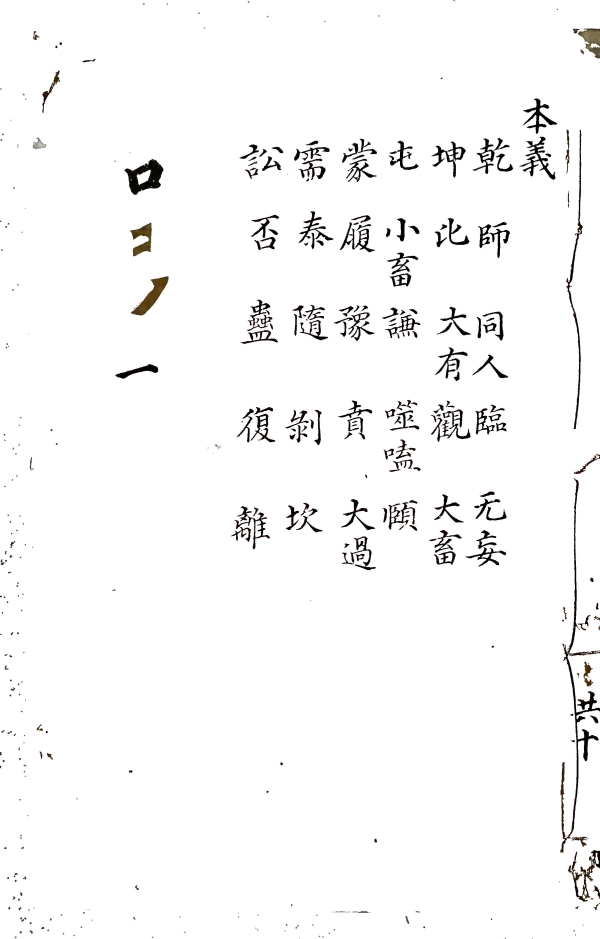 共十
本義
乾 師 同人 臨 无妄
坤 比 大有 觀 大畜
屯 小畜 謙 噬嗑 頤
蒙 履 豫 賁 大過
需 泰 隨 剝 坎
訟 否 蠱 復 離
口コノ一